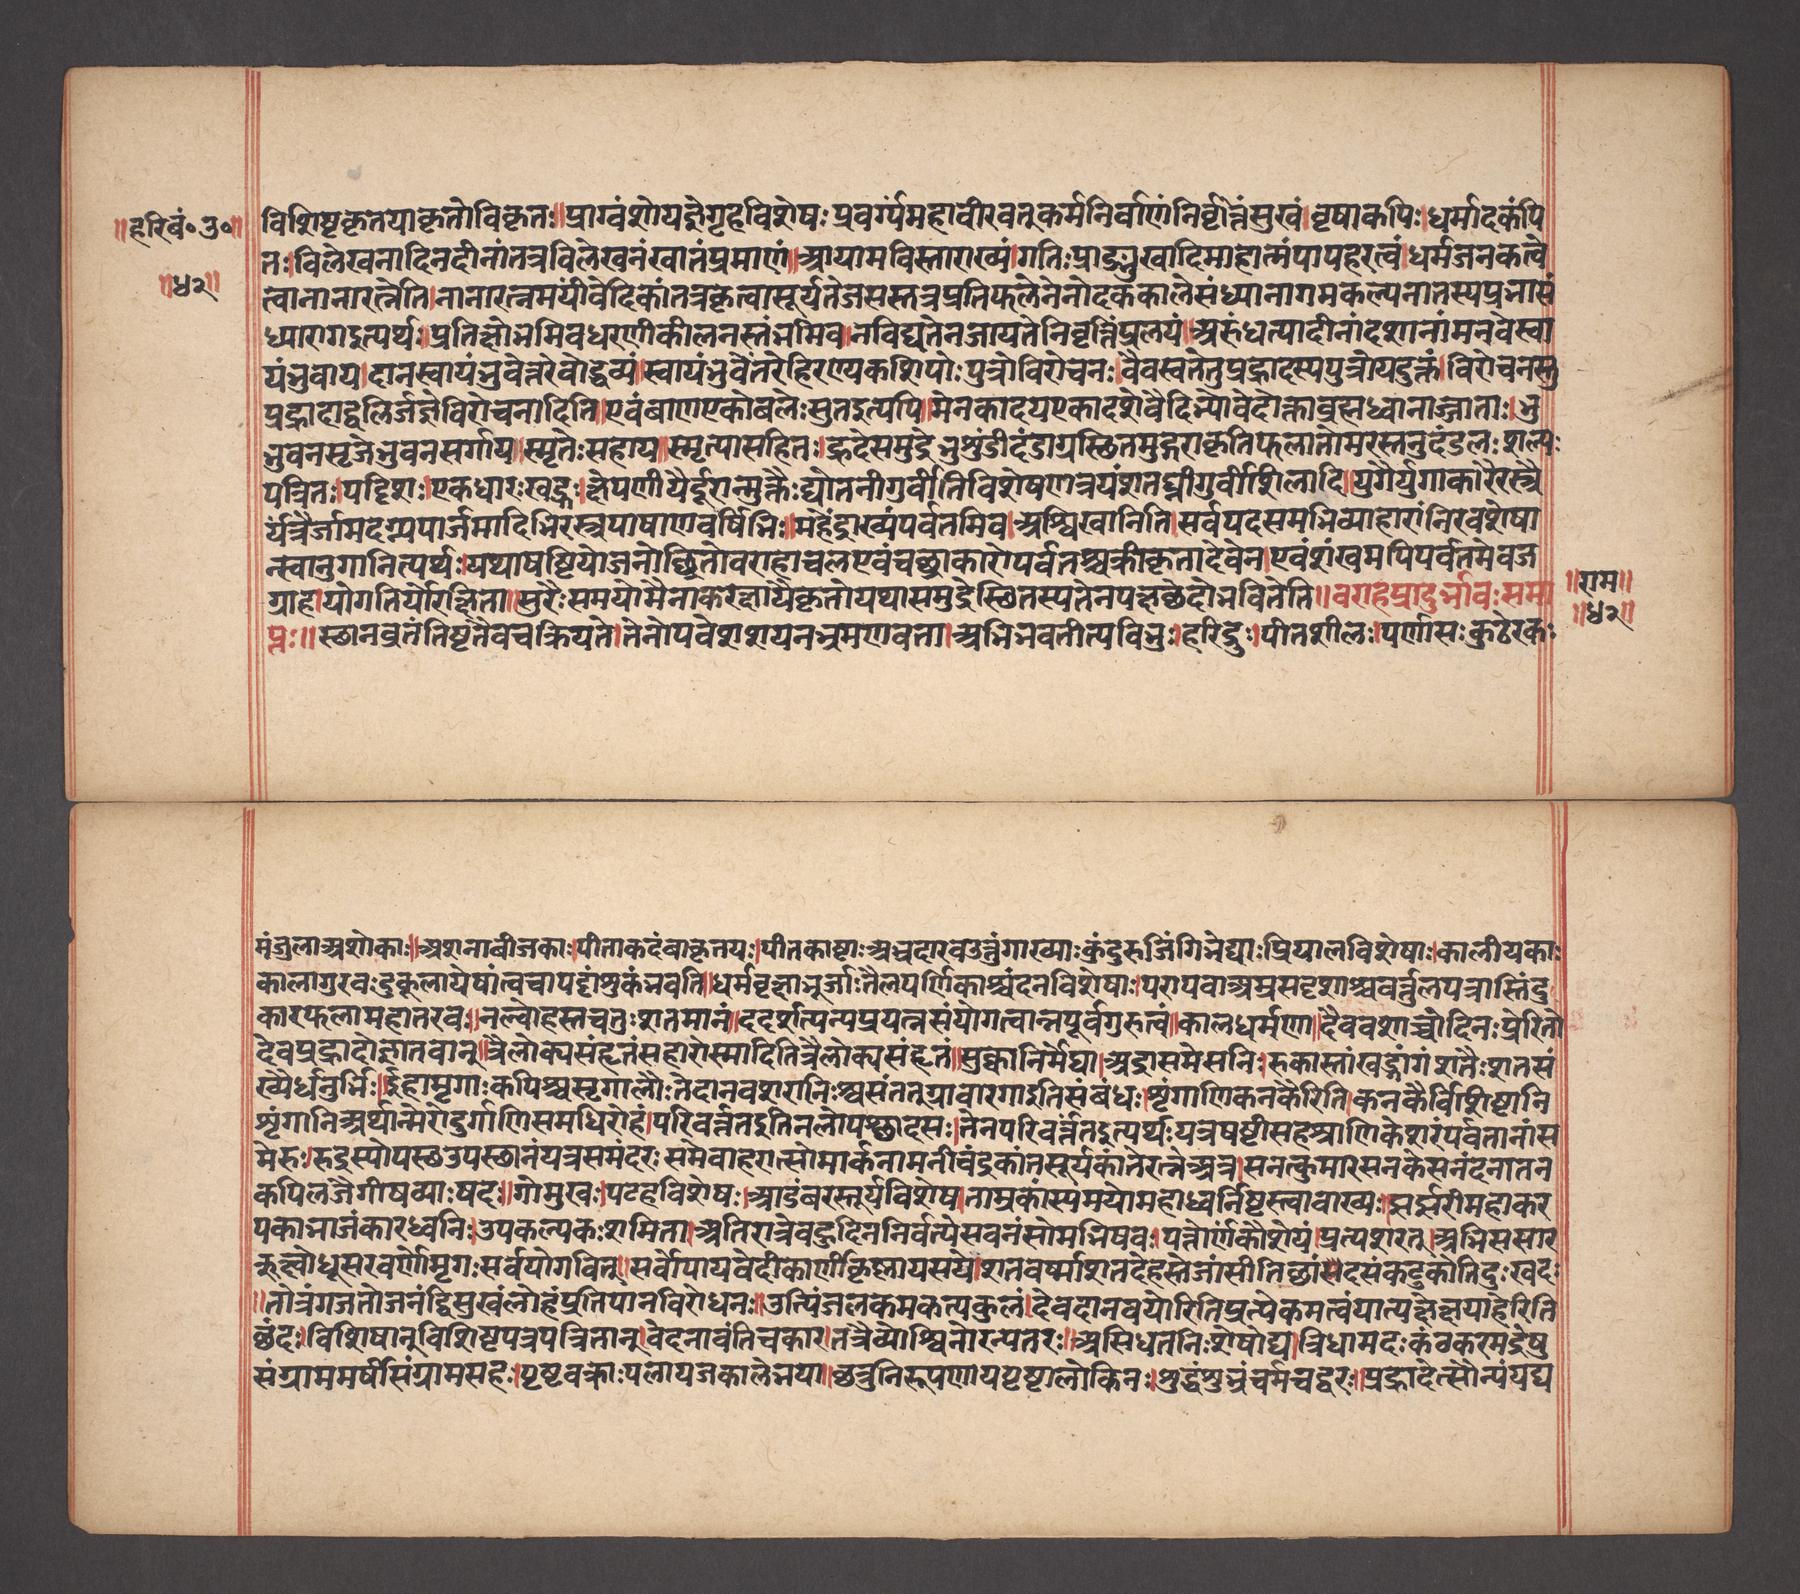 ॥हरिवं॰उ॰॥
॥५२॥
विशिष्टकृतयाकृतोविकृतः॥प्राग्वंशोयज्ञेगृहविशेषः प्रवर्ग्यमहावीरवतुकर्मनिर्वाणंनिर्वृत्तिंसुखं।वृषाकपिः।धर्मादकंपि
तः।विलेखनादिनदीनांतत्रविलेखनंखातंप्रमाणं॥आयामविस्ताराख्यं।गतिःप्राङ्मुखादिमाहात्मंपापहरत्वं।धर्मजनकत्वे
त्वानानारत्नेति।नानारत्नमयीवेदिकांतत्रकृत्वासूर्यतेजसस्तत्रप्रतिफलेनेनोदककालेसंध्यानागमकल्पनातस्यप्रभासं
ध्यारागइत्यर्थः।प्रतिक्षोभमिवधरणीकीलनस्तंभमिव।नविद्यतेनजायतेनिवृत्तिंप्रलयं॥अरुंधत्यादीनांदशानांमनवेस्वा
यंभुवाय।दानस्वायंभुवेन्तरेवोद्धव्यं।स्वायंभुवेंतरेहिरण्यकशिपोः पुत्रोविरोचनः।वैवस्वतेतुप्रह्रादस्यपुत्रोयदुक्तं।विरोचनस्तु
प्रह्रादाद्वलिर्जज्ञेविरोचनादिति॥एवंबाणएकोबलेः सुतइत्यपि॥मेनकादयएकादशवैदिभ्योवेदोक्ताब्रुह्मध्वानाज्जाताः।भु
भुवनसृजेभुवनसर्गाय॥स्मृतेः सहाय॥स्मृत्यासहितः।ह्रदेसमुद्रेभुशुंडीदंडाग्रस्थितमुद्गराकृतिफलातोमरस्तनुदंडलः शल्यः
पत्रितः।पट्टिशः।एकधारः खड्गः।क्षेपणीयैर्दूरान्मुक्तैः द्योतनीगुर्वीतिविशेषणत्रयंशतघ्नीगुर्वीशिलादि।युगैर्युगाकारैरस्त्रै
र्यंत्रैर्जामदग्न्यपार्जमादिभिरस्त्रपाषाणवर्षिभिः॥महेंद्राख्यंपर्वतमिव।अश्विखानिति।सर्वपदसमभिव्याहारांनिरवशेषा
न्स्वानुगानित्यर्थः।यथाषष्टियोजनोच्छ्रितोवराहाचलएवंचक्राकारोपर्वतश्चक्रीकृतादेवेन।एवंशंखमपिपर्वतमेवज
ग्राह।योगतिर्योरिक्षिता॥सुरैः समयोमैनाकेरक्षायैकृतोयथासमुद्रेस्थितस्यतेनपक्षच्छेदोभवितेति॥वराहप्रादुर्भावः समा
प्तः॥स्थानव्रतंतिष्ठतैवचक्रियते।तेनोपवेशशयनभ्रमणवता।अभिभवतीत्यविभुः।हरिद्रुः।पीतशीलः।पर्णासः कुठेरकः
॥राम॥
॥५२॥
मंजुलाअशोकाः॥अशनाबीजकाः।पीताकदंबाकृतयः।पीतकाष्टाः अच्चदारवउत्तुंगाख्याः कुंदुरुजिंगिभेद्याः प्रियालविशेषाः।कालीयकाः
कालागुरवः दुकूलायेषांत्वचापट्टांशुकंभवति॥धर्मवृक्षाभूर्जाः।तैलपर्णिकाश्चंदनविशेषाः।परापवाअम्रसदृशाश्चवर्त्तुलपत्रास्तिंदु
कारफलामहातरवः॥नल्वोहस्तचतुःशतमानं।ददर्शत्यन्यप्रयत्नसंयोगत्वान्नपूर्वगुरुत्वं॥कालधर्मणा॥दैववशाच्चोदितः प्रेरितो
देवप्रह्रादोज्ञातवान्॥त्रैलोक्यसंहृतंसहारोस्मादितित्रैलोक्यसंहृतं॥मुक्तोनिर्मेघा।अट्टासमेसनिः।रुकास्तांखड्गांगंशतैः शतसं
ख्यैर्धनुर्भिः।ईहामृगाः कपिश्चसृगालौ।तेदानवशरानिः श्वसंततग्रावारगाइतिसंबंधः।शृंगाणिकनकैरिति।कनकैर्विशिष्टानि
शृंगानिअर्थान्मेरोदुर्गाणिसमधिरोहं।परिवर्त्ततइतिनलोपश्छादसः।तेनपरिवर्त्तंतइत्यर्थः यत्रषष्टीसहश्राणिकेशरंपर्वतानांस
मेरुः।रुद्रस्योपस्थउपस्थानंयत्रसमंदरः समेवाहरात्सोमार्कनामनीचंद्रकांतसूर्यकांतेरत्नेअत्र।सनत्कुमारसनकेसनंदनातन
कपिलजैगीषव्याः षट्॥गोमुखः।पटहविशेषः।आडंबरस्तूर्यविशेष।ताम्रकांस्यमयोमहाध्वनिष्टस्त्वावाख्यः।झर्झरीमहाकर
पकाभाजंकारध्वनिः।उपकल्पकः शमिता।अतिरात्रेवहुदिननिर्वत्येसवनंसोमभिषवः।पत्नोर्णकौशेयं।प्रत्यशरत्।अभिससार
कुक्षोधूसरवर्णोमृगः सर्वयोगवित्।सर्वोपायवेदीकार्णीकृष्णायसये।शतवर्ष्माशतदेहस्तेजांसीतिछांसदसंकटुकोतिदुःखदः
॥तोत्रंगजतोजनंद्विसुखंलोहंप्रतिपानविरोधनः॥उत्पिंजलकमकत्यकुलं।देवदानवयोरितिप्रत्येकमत्वंयात्यक्षेक्षयाहेरिति
छंदः।विशिषानुविशिष्टपत्रपत्रितान्।वेदनावंतिचकार।तत्रैव्योश्विनोरन्यतरः।असिधतनिःशेषोद्य।त्रिधामदः कंठकरमद्रेषु
संग्राममर्षीसंग्रामसहः।पृष्टवक्ताः पलायजकालेभया॥च्छत्रुनिरूपणायपृष्टालोकिनः।शुद्धंशुभ्रंचर्मचद्वरः॥प्रह्रादेत्सौन्यंयद्य